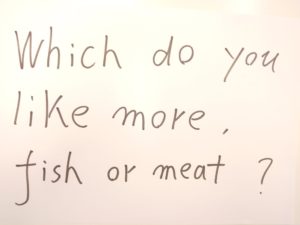 Which do you
like more,
fish or meat ?